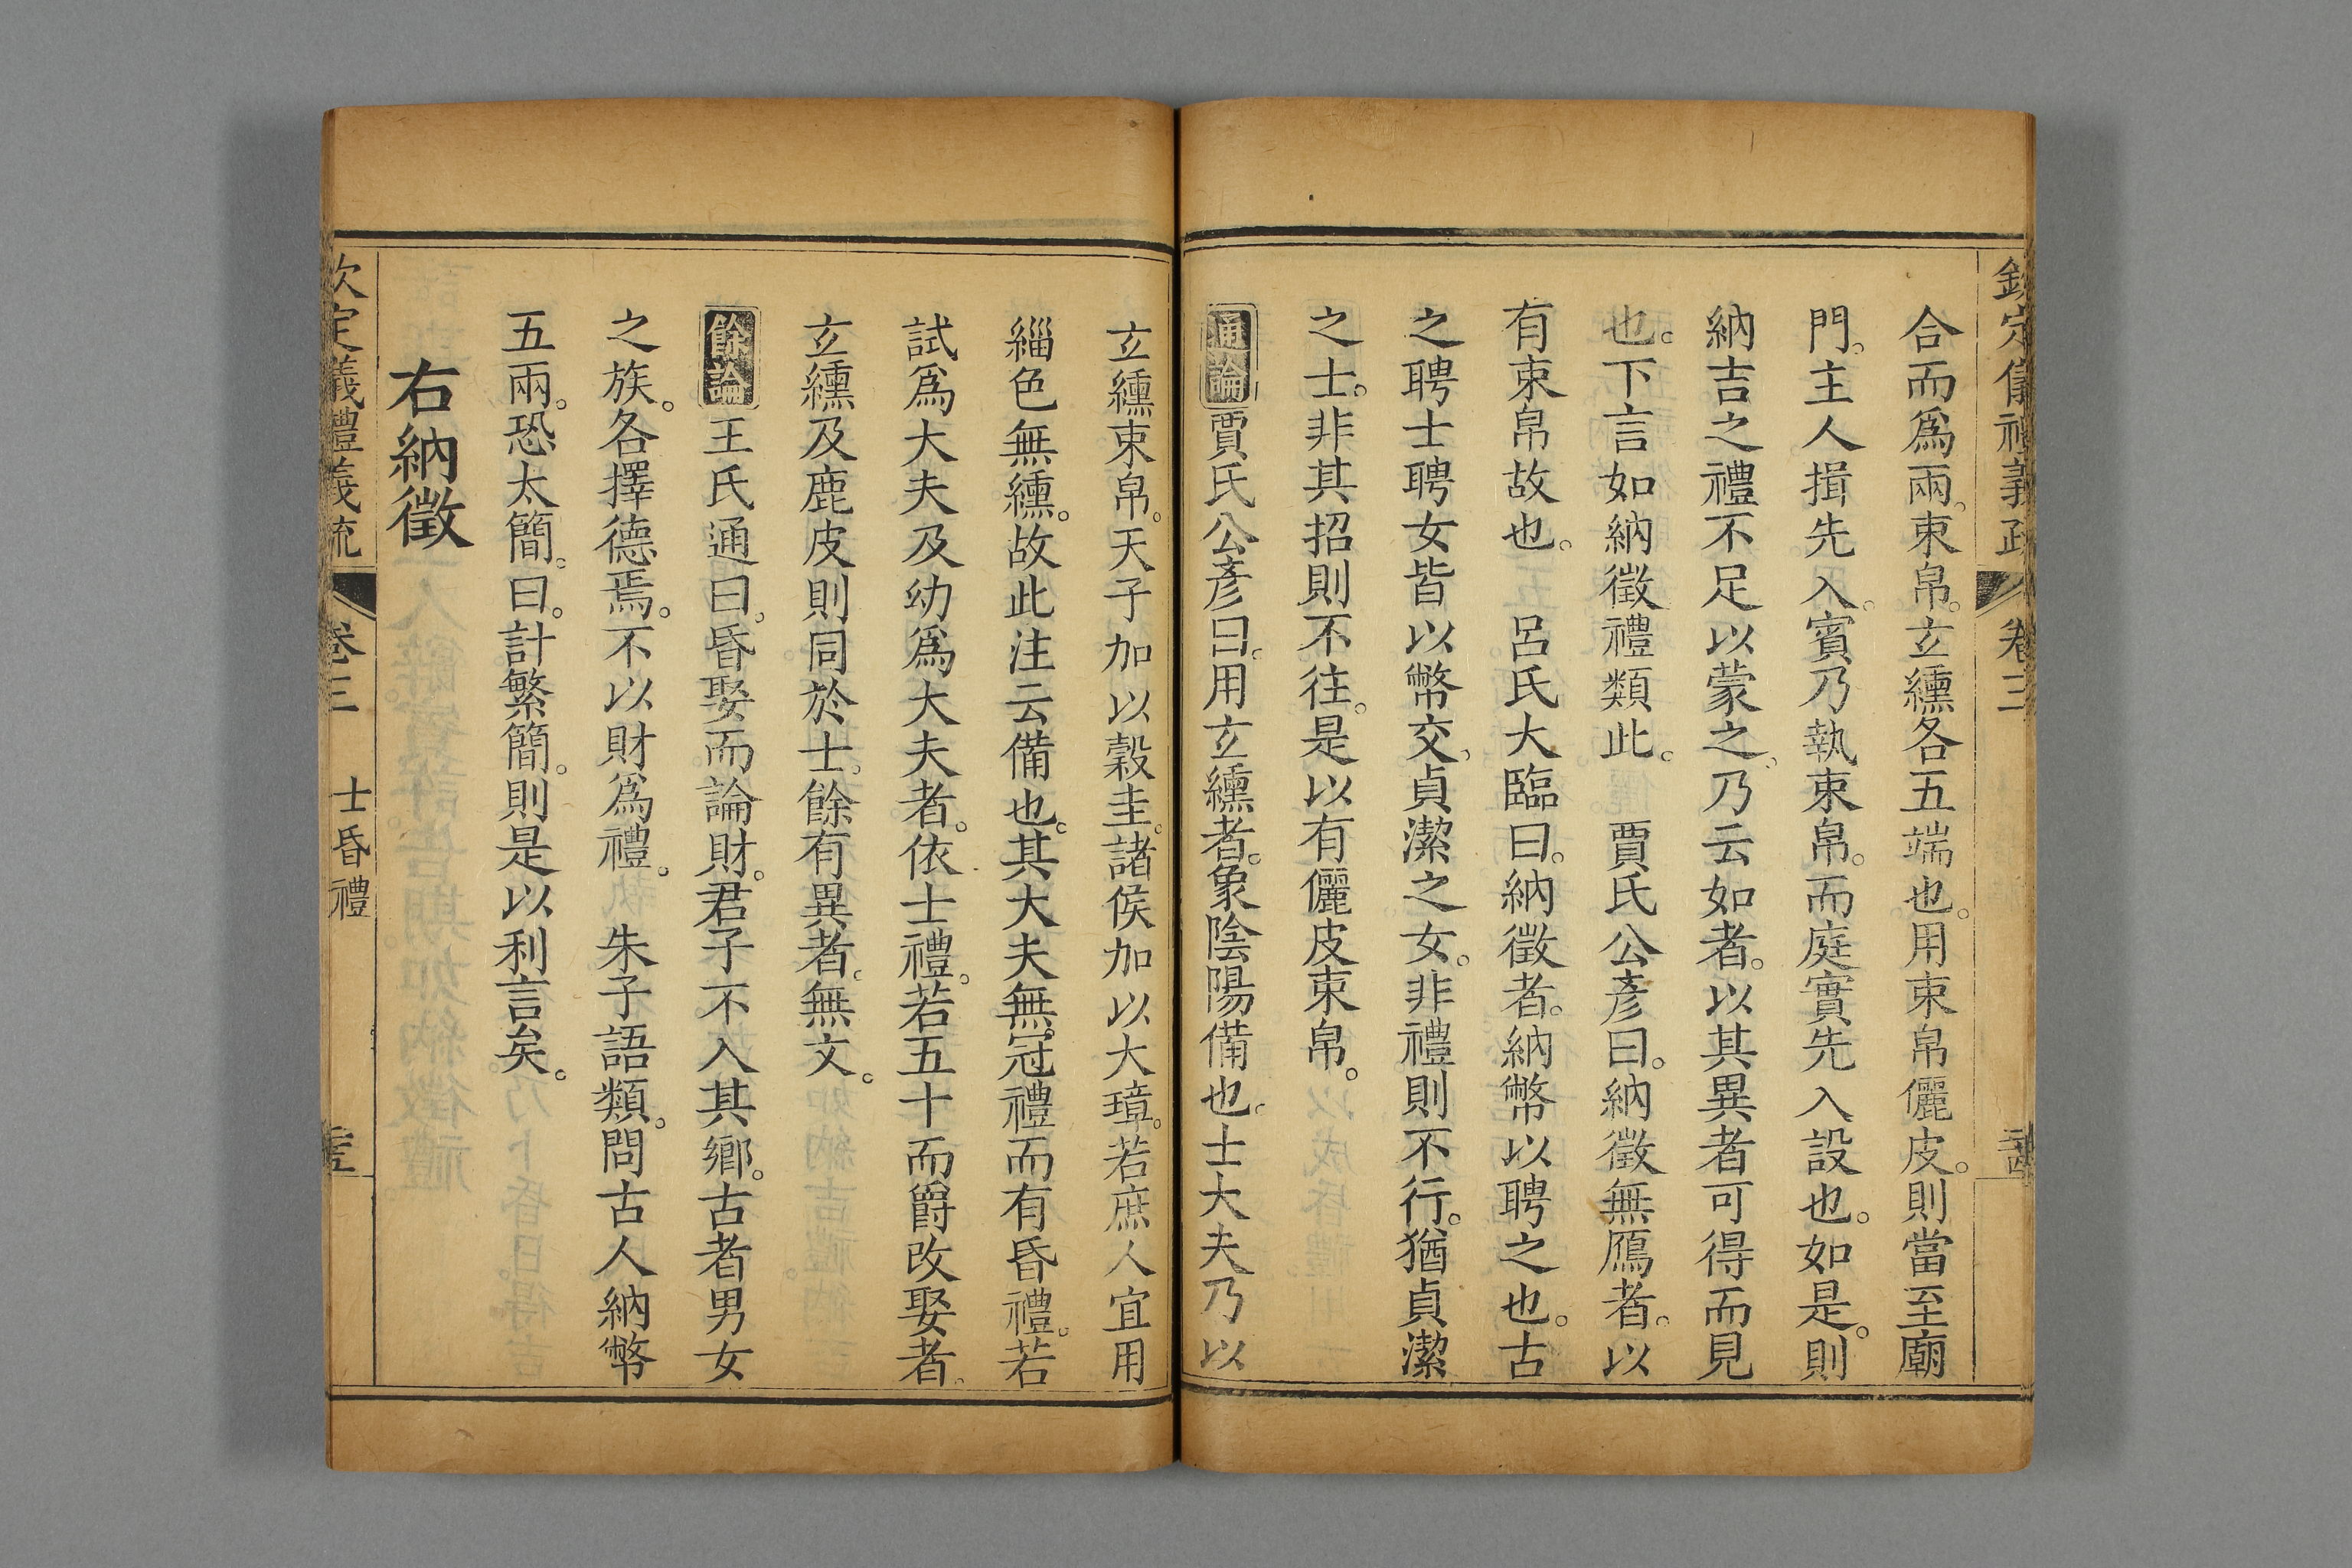 欽定儀禮義疏 卷三
合而爲兩。束帛。玄纁各五端也。用束帛儷皮。則當至廟
門。主人揖先入。賓乃執束帛。而庭實先入設也。如是。則
納吉之禮不足以蒙之。乃云如者。以其異者可得而見
也。下言如納徵禮類此。 賈氏公彥曰。納徵無鴈者。以
有束帛故也。 呂氏大臨曰。納徵者。納幣以聘之也。古
之聘士聘女皆以幣交。貞潔之女。非禮則不行。猶貞潔
之士。非其招則不往。是以有儷皮束帛。
通論賈氏公彥曰。用玄纁者。象陰陽備也。士大夫乃以
玄纁束帛。天子加以穀圭。諸侯加以大璋。若庶人宜用
緇色無纁。故此注云備也。其大夫無冠禮而有昏禮。若
試爲大夫及幼爲大夫者。依士禮。若五十而爵改娶者。
玄纁及鹿皮則同於士。餘有異者。無文。
餘論王氏通曰。昏娶而論財。君子不入其鄉。古者男女
之族。各擇德焉。不以財爲禮。 朱子語類。問古人納幣
五兩。恐太簡。曰。計繁簡。則是以利言矣。
右納徵
欽定儀禮義疏 卷三 士昏禮